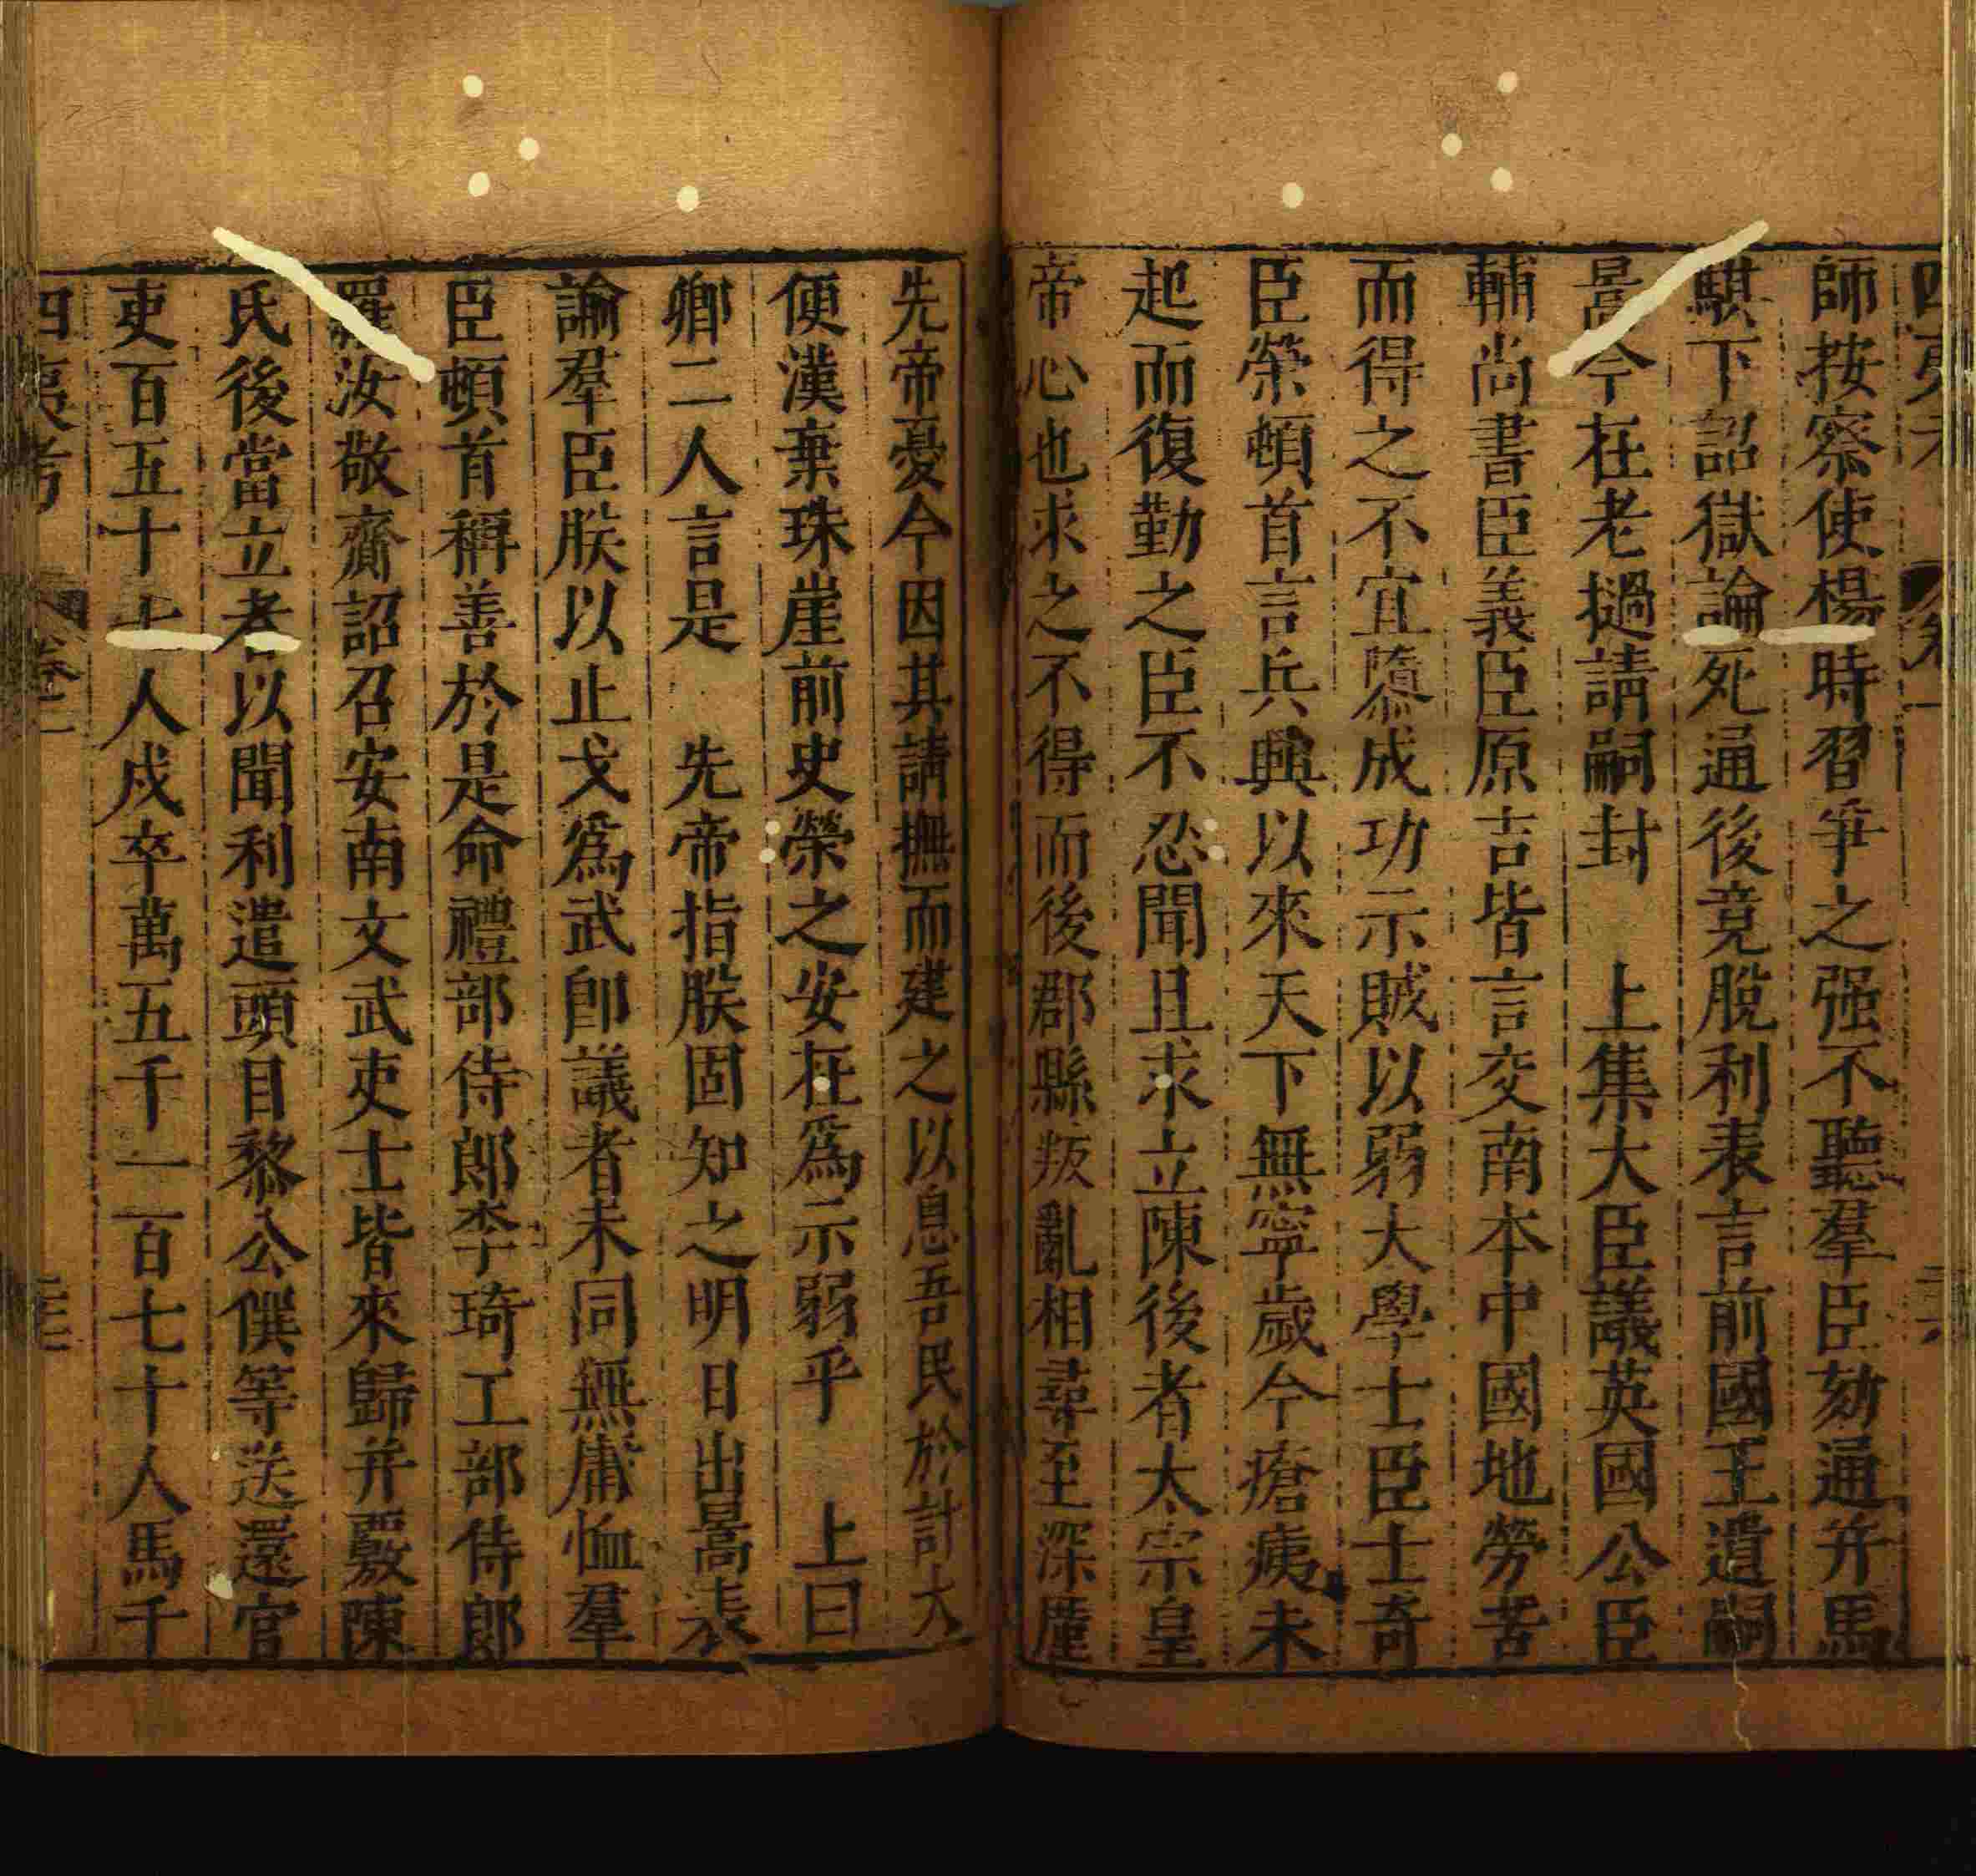 師按察使楊時習爭之强不聽羣臣劾通并馬
騏下詔獄論死通後竟脫利表言前國王遺嗣
暠今在老撾請嗣封 上集大臣議英國公臣
輔尚書臣義臣原吉皆言交南本中國地勞苦
而得之不宜隳成功示賊以弱大學士臣士奇
臣榮頓首言兵興以來天下無寧歲今瘡痍未
起而復勤之臣不忍聞且求立陳後者太宗皇
帝心也求之不得而後郡縣叛亂相尋至深廑
先帝憂今因其請撫而建之以息吾民於計大
便漢棄珠崖前史榮之安在爲示弱乎 上曰
卿二人言是 先帝指朕固知之明日出暠表
諭羣臣朕以止戈爲武卽議者未同無庸恤羣
臣頓首稱善於是命禮部侍郎李琦工部侍郎
羅汝敬齎詔召安南文武吏士皆來歸并覈陳
氏後當立者以聞利遣頭目黎公僎等送還官
吏百五十七人戍卒萬五千一百七十人馬千
四夷考 卷二 二十七